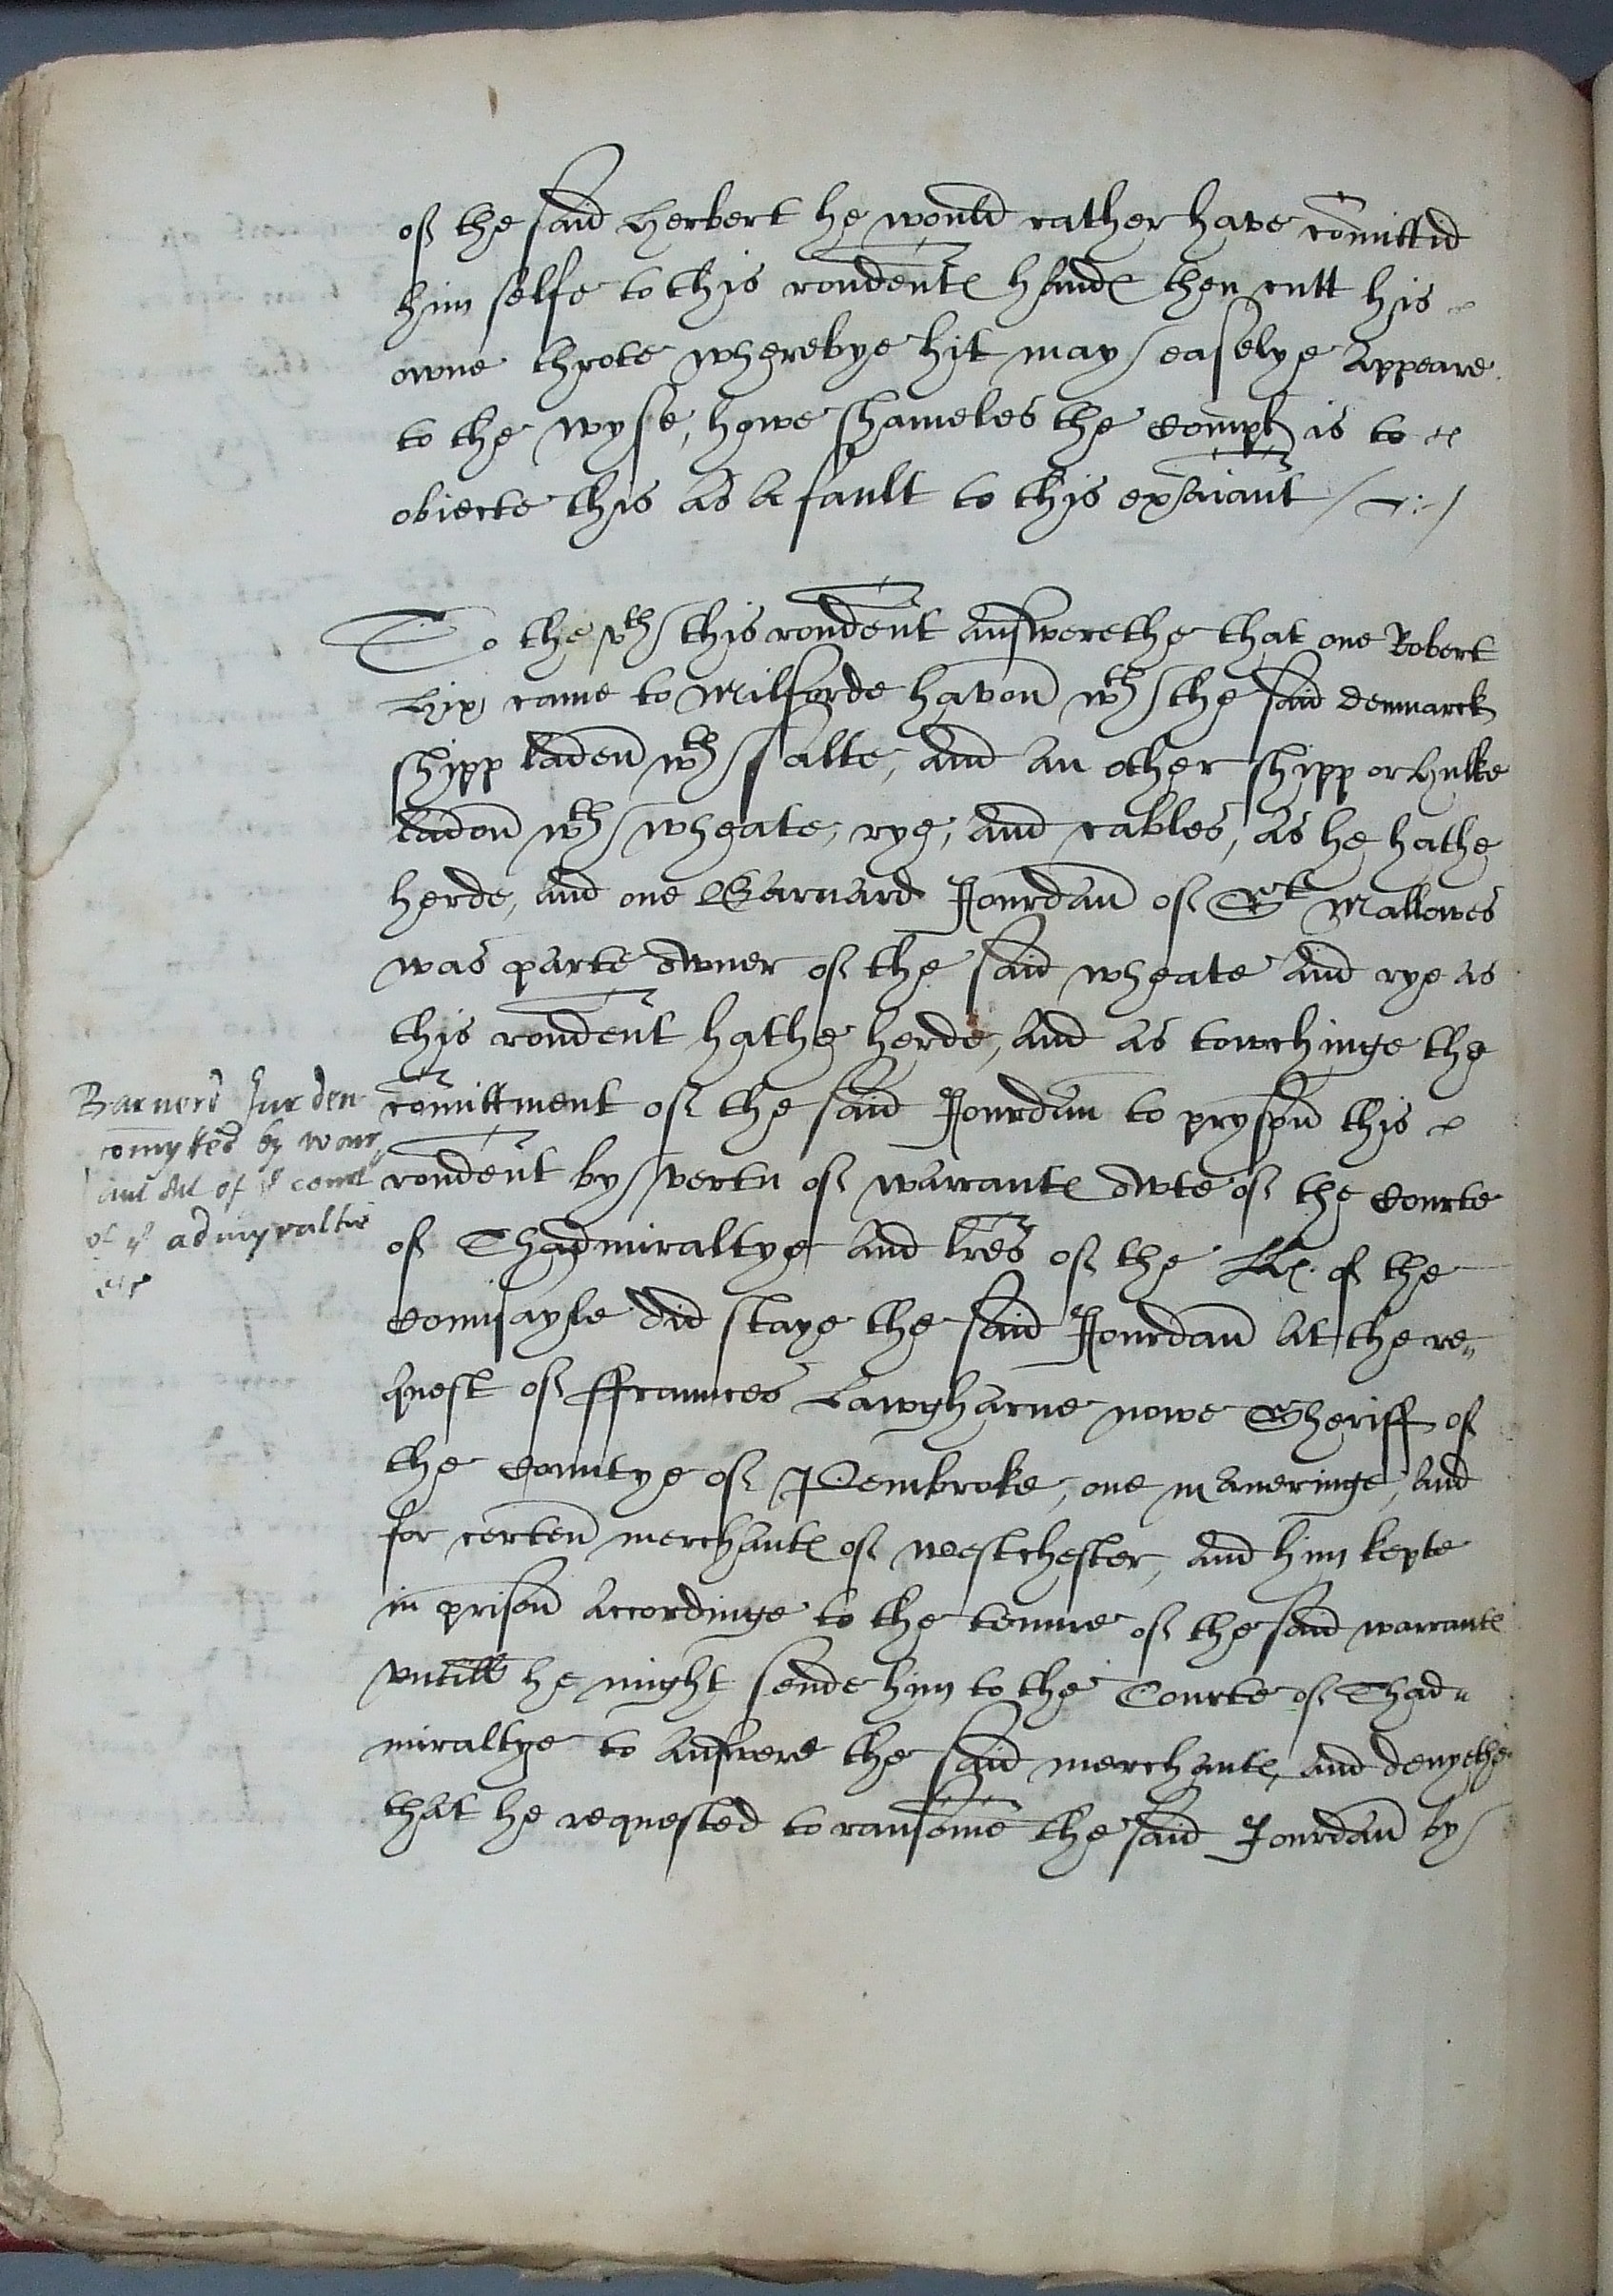 of the said Herbert he would rather have comittid
him selfe to this rondentes handes then cutt his
owne throte wherebye hit may easelye appeare
to the wyse, howe shameles the complt is to
obiecte this as a fault to this examiant
To the vth this rondent answerethe that one Robert
Hix came to Milforde havon wth the said denmarck
shipp laden wth salte, and an other shipp or hulke
ladon wth wheate, rye, and cables, as he hathe
herde, and one Barnard Jourdan of St Mallowes
was parte owner of the said wheate and rye as
this rondent hathe herde, and as towchinge the
comittment of the said Jourdan to pryson this
rondent by vertu of warrantes owte of the Courte
of Thadmiraltye and lres of the LLes. of the
Counsayle did staye the said Jourdan at the re„
quest of ffraunces Lawgharne nowe Sheriff of
the Countye of Pembroke, one maneringe, and
for certen merchantes of westchester, and him kepte
in prison accordinge to the tenure of the said warrantes
untill he might sende him to the Courte of Thad„
miraltye to answere the said merchantes, and denyethe
that he requested to ransome the said Jourdan by
Barnerd Jurden
comytted by warr„
ant out of ye court
of ye admyraltie